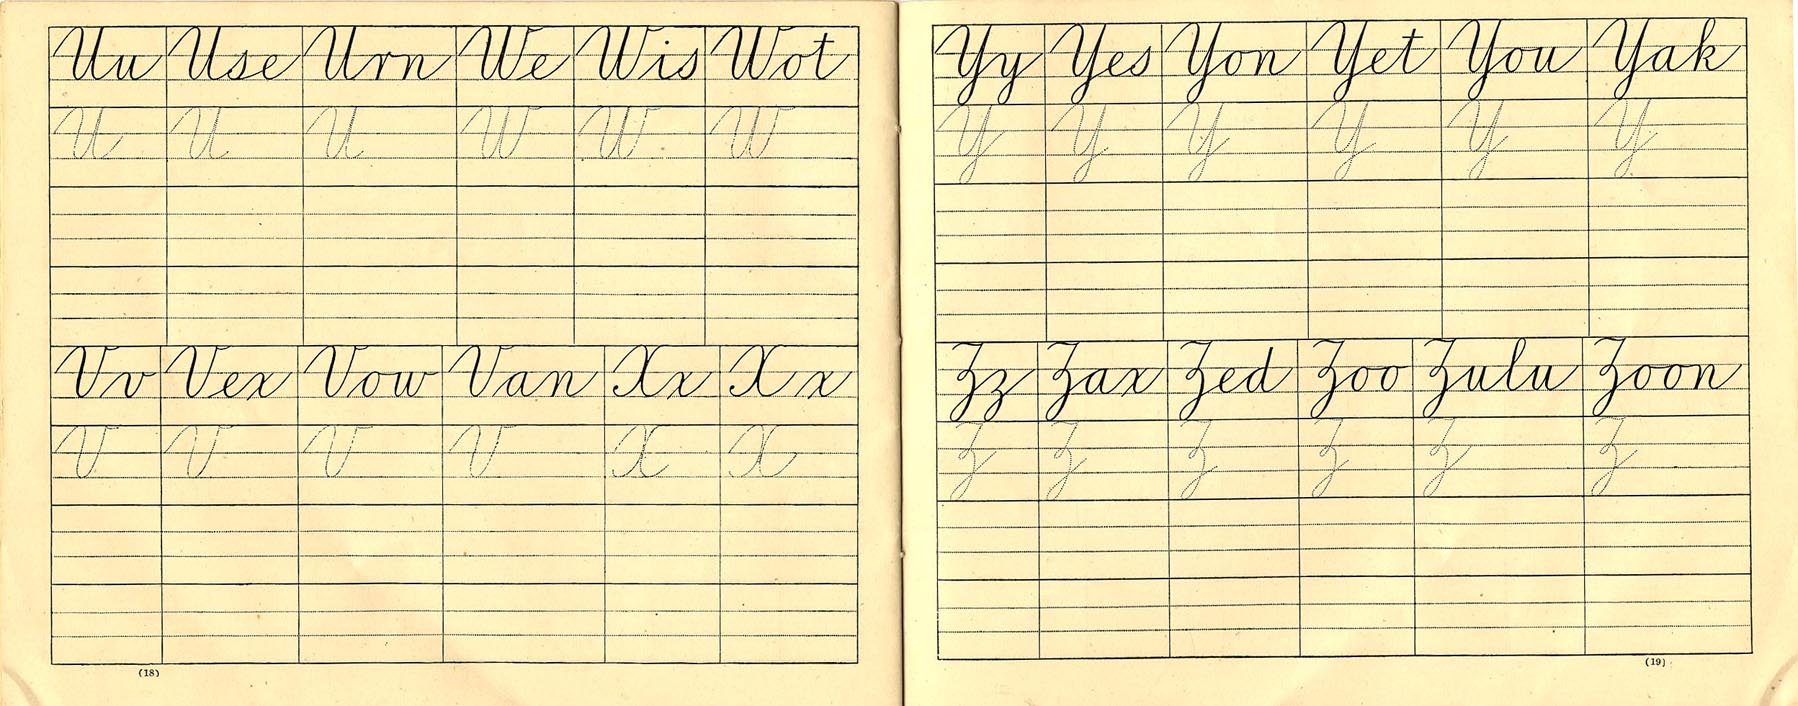 Uu Use Urn We Wis Wot
U U U W W W
Vv Vex Vow Van Xx X x
V V V V X X
(18)
Yy Yes Yon Yet You Yak
Y Y Y Y Y Y
Zz Zax Zed Zoo Zulu Zoon
Z Z Z Z Z Z
(19)